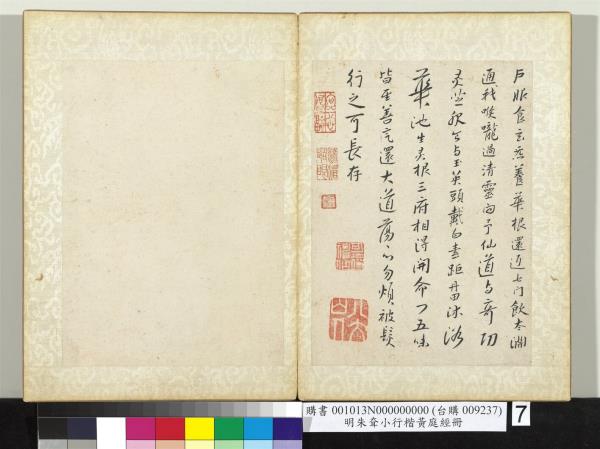 戶服食玄炁養華根還返七門飲太淵
通我喉嚨過清靈向于仙道与奇功
灵芝服兮与玉英頭戴白素距丹田沐浴
華池生灵根三府相得開命门五味
皆至善炁還大道蕩々心勿煩被髮
行之可長存
購書 001013N000000000 (台購 009237)
明朱耷小行楷黃庭經冊
7